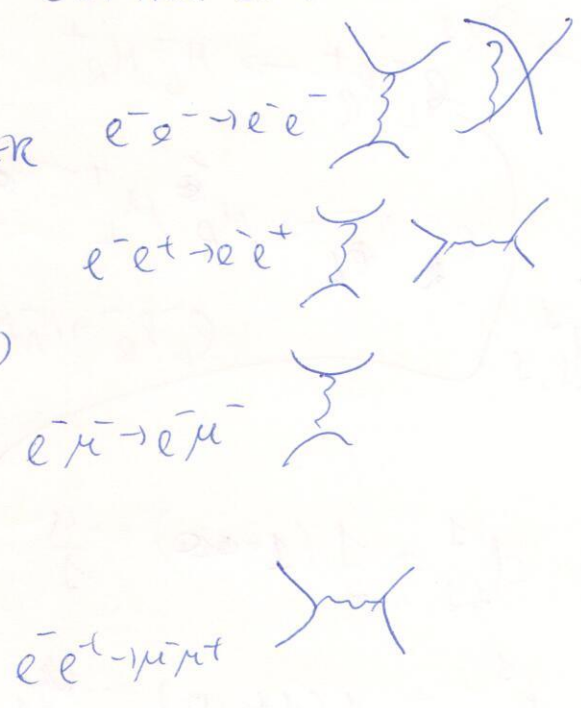 e⁻ e⁻ → e⁻ e⁻
e⁻ e⁺ → e⁻ e⁺
e⁻ μ⁻ → e⁻ μ⁻
e⁻ e⁺ → μ⁻ μ⁺